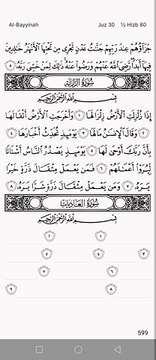 Al-Bayyinah Juz 30 ½ Hizb 60
جَزَآؤُهُمْ عِندَ رَبِّهِمْ جَنَّٰتُ عَدْنٍ تَجْرِى مِن تَحْتِهَا ٱلْأَنْهَٰرُ خَٰلِدِينَ
فِيهَآ أَبَدًا رَّضِىَ ٱللَّهُ عَنْهُمْ وَرَضُوا۟ عَنْهُ ذَٰلِكَ لِمَنْ خَشِىَ رَبَّهُۥ ٨
سُورَةُ الزَّلْزَلَةِ
بِسْمِ ٱللَّهِ ٱلرَّحْمَٰنِ ٱلرَّحِيمِ
إِذَا زُلْزِلَتِ ٱلْأَرْضُ زِلْزَالَهَا ١ وَأَخْرَجَتِ ٱلْأَرْضُ أَثْقَالَهَا
٢ وَقَالَ ٱلْإِنسَٰنُ مَا لَهَا ٣ يَوْمَئِذٍ تُحَدِّثُ أَخْبَارَهَا ٤
بِأَنَّ رَبَّكَ أَوْحَىٰ لَهَا ٥ يَوْمَئِذٍ يَصْدُرُ ٱلنَّاسُ أَشْتَاتًا
لِّيُرَوْا۟ أَعْمَٰلَهُمْ ٦ فَمَن يَعْمَلْ مِثْقَالَ ذَرَّةٍ خَيْرًا
يَرَهُۥ ٧ وَمَن يَعْمَلْ مِثْقَالَ ذَرَّةٍ شَرًّا يَرَهُۥ ٨
سُورَةُ العَادِيَاتِ
بِسْمِ ٱللَّهِ ٱلرَّحْمَٰنِ ٱلرَّحِيمِ
١ ٢
٣ ٤ ٥
٦ ٧
٨ ٩
599